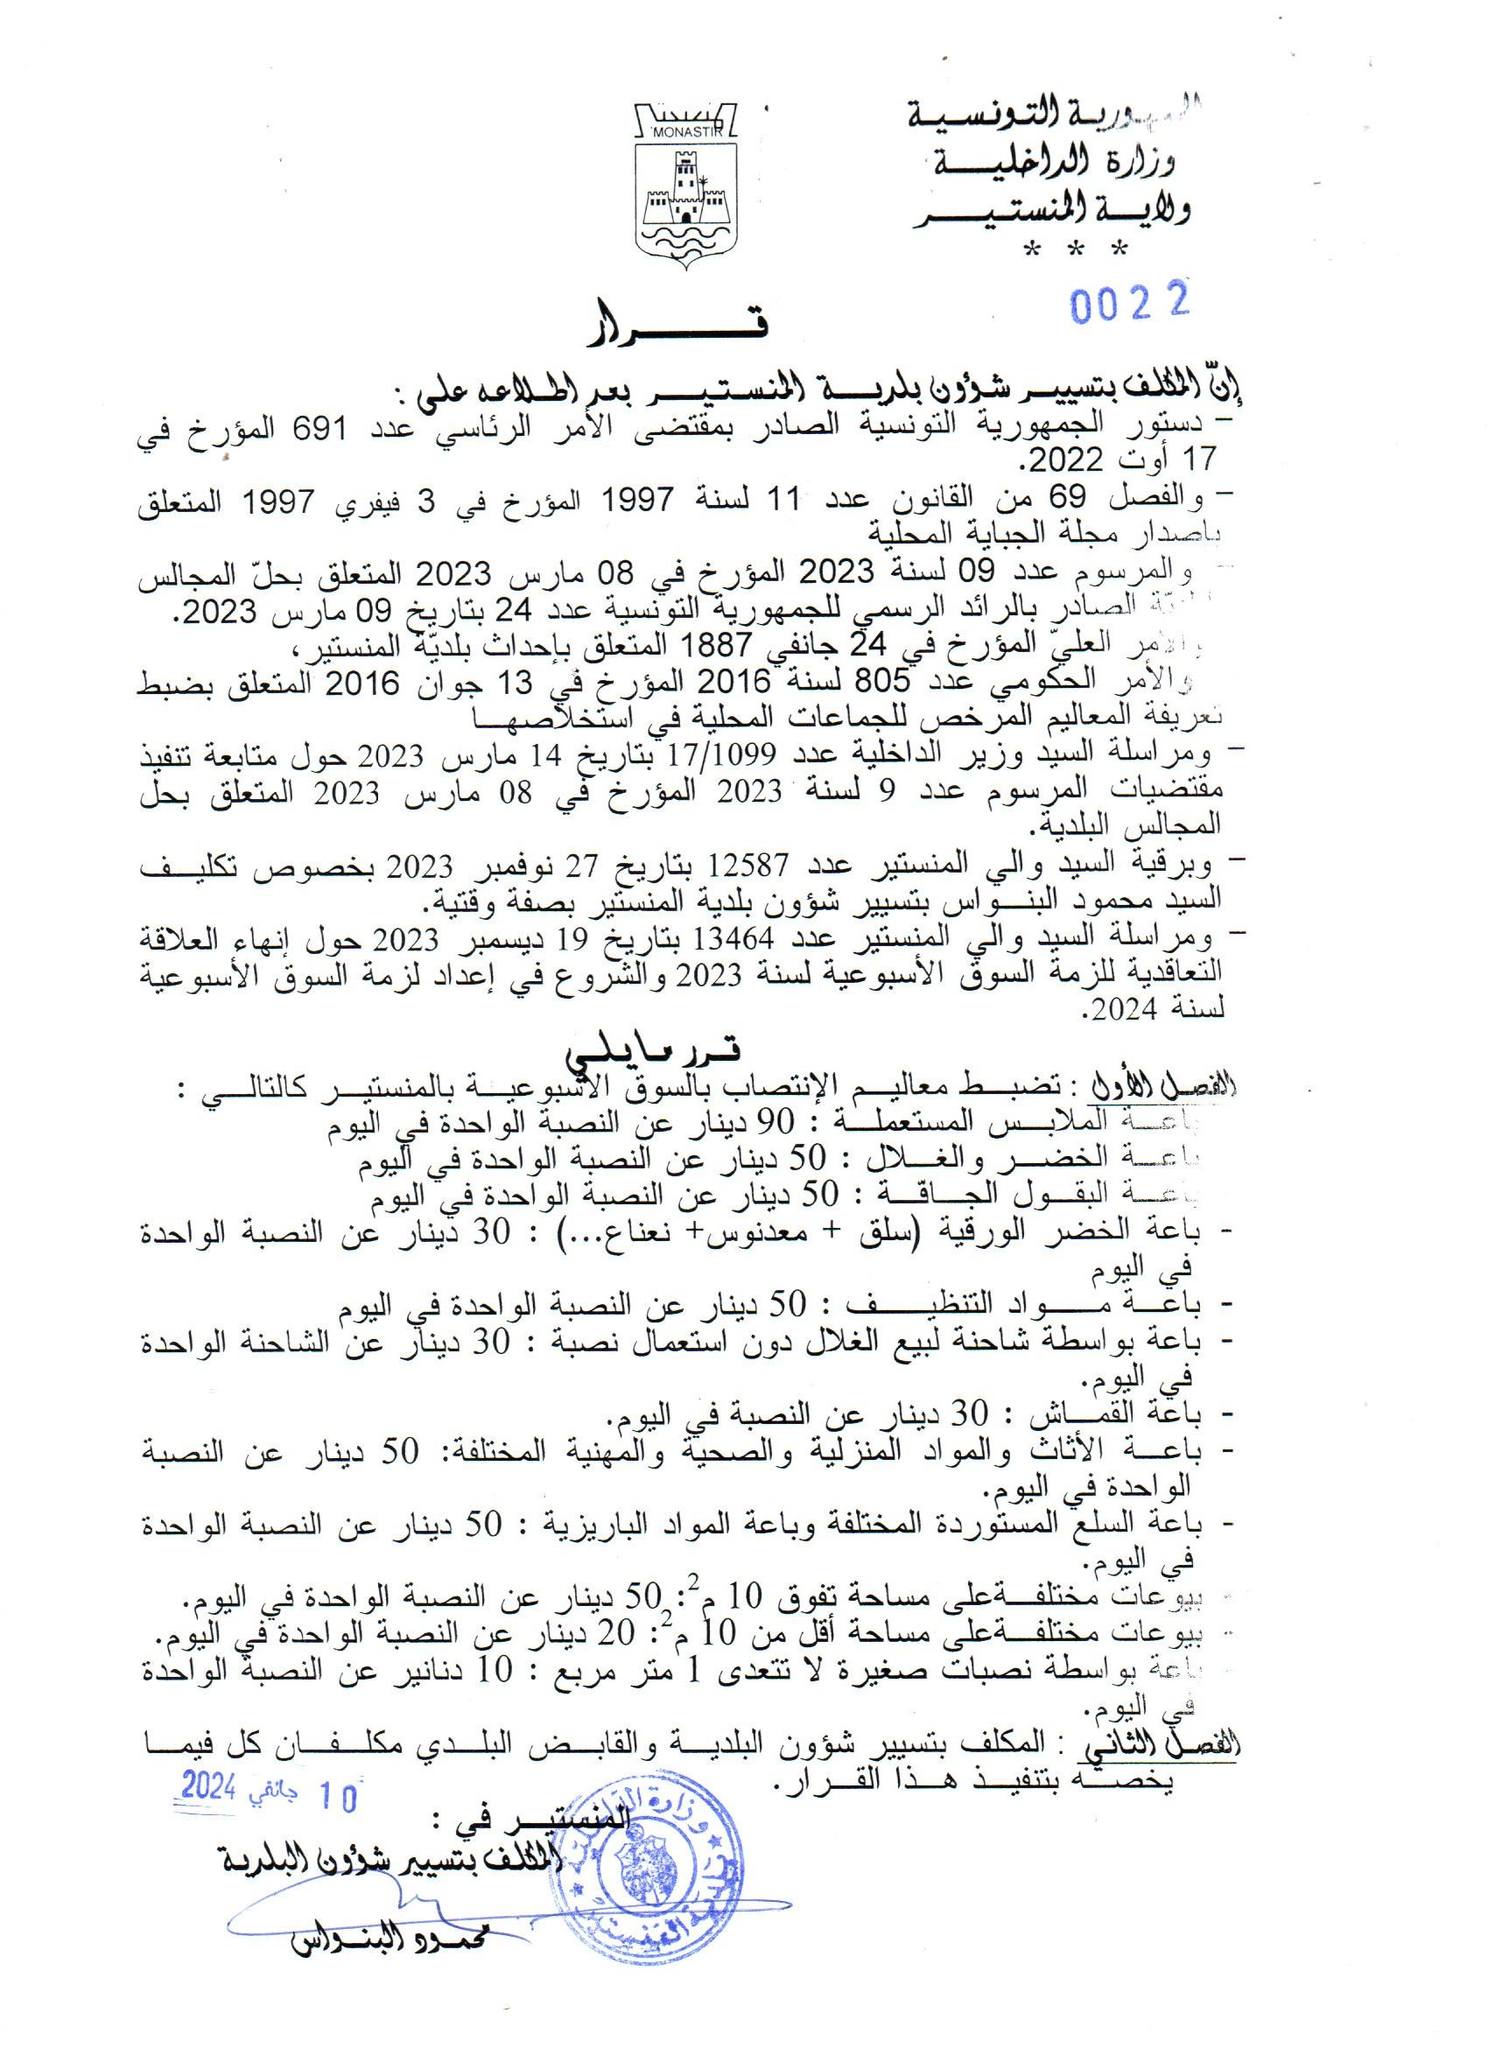 المنستير
MONASTIR
الجمهورية التونسية
وزارة الداخلية
ولاية المنستير
* * *
0022
قرار
إنّ المكلف بتسيير شؤون بلدية المنستير بعد اطلاعه على :
– دستور الجمهورية التونسية الصادر بمقتضى الأمر الرئاسي عدد 691 المؤرخ في
17 أوت 2022.
– والفصل 69 من القانون عدد 11 لسنة 1997 المؤرخ في 3 فيفري 1997 المتعلق
بإصدار مجلة الجباية المحلية
– والمرسوم عدد 09 لسنة 2023 المؤرخ في 08 مارس 2023 المتعلق بحلّ المجالس
الصادر بالرائد الرسمي للجمهورية التونسية عدد 24 بتاريخ 09 مارس 2023.
والأمر العليّ المؤرخ في 24 جانفي 1887 المتعلق بإحداث بلديّة المنستير،
والأمر الحكومي عدد 805 لسنة 2016 المؤرخ في 13 جوان 2016 المتعلق بضبط
تعريفة المعاليم المرخص للجماعات المحلية في استخلاصها
– ومراسلة السيد وزير الداخلية عدد 17/1099 بتاريخ 14 مارس 2023 حول متابعة تنفيذ
مقتضيات المرسوم عدد 9 لسنة 2023 المؤرخ في 08 مارس 2023 المتعلق بحل
المجالس البلدية.
– وبرقية السيد والي المنستير عدد 12587 بتاريخ 27 نوفمبر 2023 بخصوص تكليف
السيد محمود البنواس بتسيير شؤون بلدية المنستير بصفة وقتية.
– ومراسلة السيد والي المنستير عدد 13464 بتاريخ 19 ديسمبر 2023 حول إنهاء العلاقة
التعاقدية للزمة السوق الأسبوعية لسنة 2023 والشروع في إعداد لزمة السوق الأسبوعية
لسنة 2024.
قرر مايلي
الفصل الأول : تضبط معاليم الإنتصاب بالسوق الأسبوعية بالمنستير كالتالي :
باعة الملابس المستعملة : 90 دينار عن النصبة الواحدة في اليوم
باعة الخضر والغلال : 50 دينار عن النصبة الواحدة في اليوم
باعة البقول الجافة : 50 دينار عن النصبة الواحدة في اليوم
- باعة الخضر الورقية (سلق + معدنوس+ نعناع...) : 30 دينار عن النصبة الواحدة
في اليوم
- باعة مواد التنظيف : 50 دينار عن النصبة الواحدة في اليوم
- باعة بواسطة شاحنة لبيع الغلال دون استعمال نصبة : 30 دينار عن الشاحنة الواحدة
في اليوم.
- باعة القماش : 30 دينار عن النصبة في اليوم.
- باعة الأثاث والمواد المنزلية والصحية والمهنية المختلفة: 50 دينار عن النصبة
الواحدة في اليوم.
- باعة السلع المستوردة المختلفة وباعة المواد الباريزية : 50 دينار عن النصبة الواحدة
في اليوم.
- بيوعات مختلفة على مساحة تفوق 10 م²: 50 دينار عن النصبة الواحدة في اليوم.
- بيوعات مختلفة على مساحة أقل من 10 م²: 20 دينار عن النصبة الواحدة في اليوم.
- باعة بواسطة نصبات صغيرة لا تتعدى 1 متر مربع : 10 دنانير عن النصبة الواحدة
في اليوم.
الفصل الثاني : المكلف بتسيير شؤون البلدية والقابض البلدي مكلفان كل فيما
يخصه بتنفيذ هذا القرار.
10 جانفي 2024
المنستير في :
المكلف بتسيير شؤون البلدية
محمود البنواس
وزارة الداخلية
بلدية المنستير